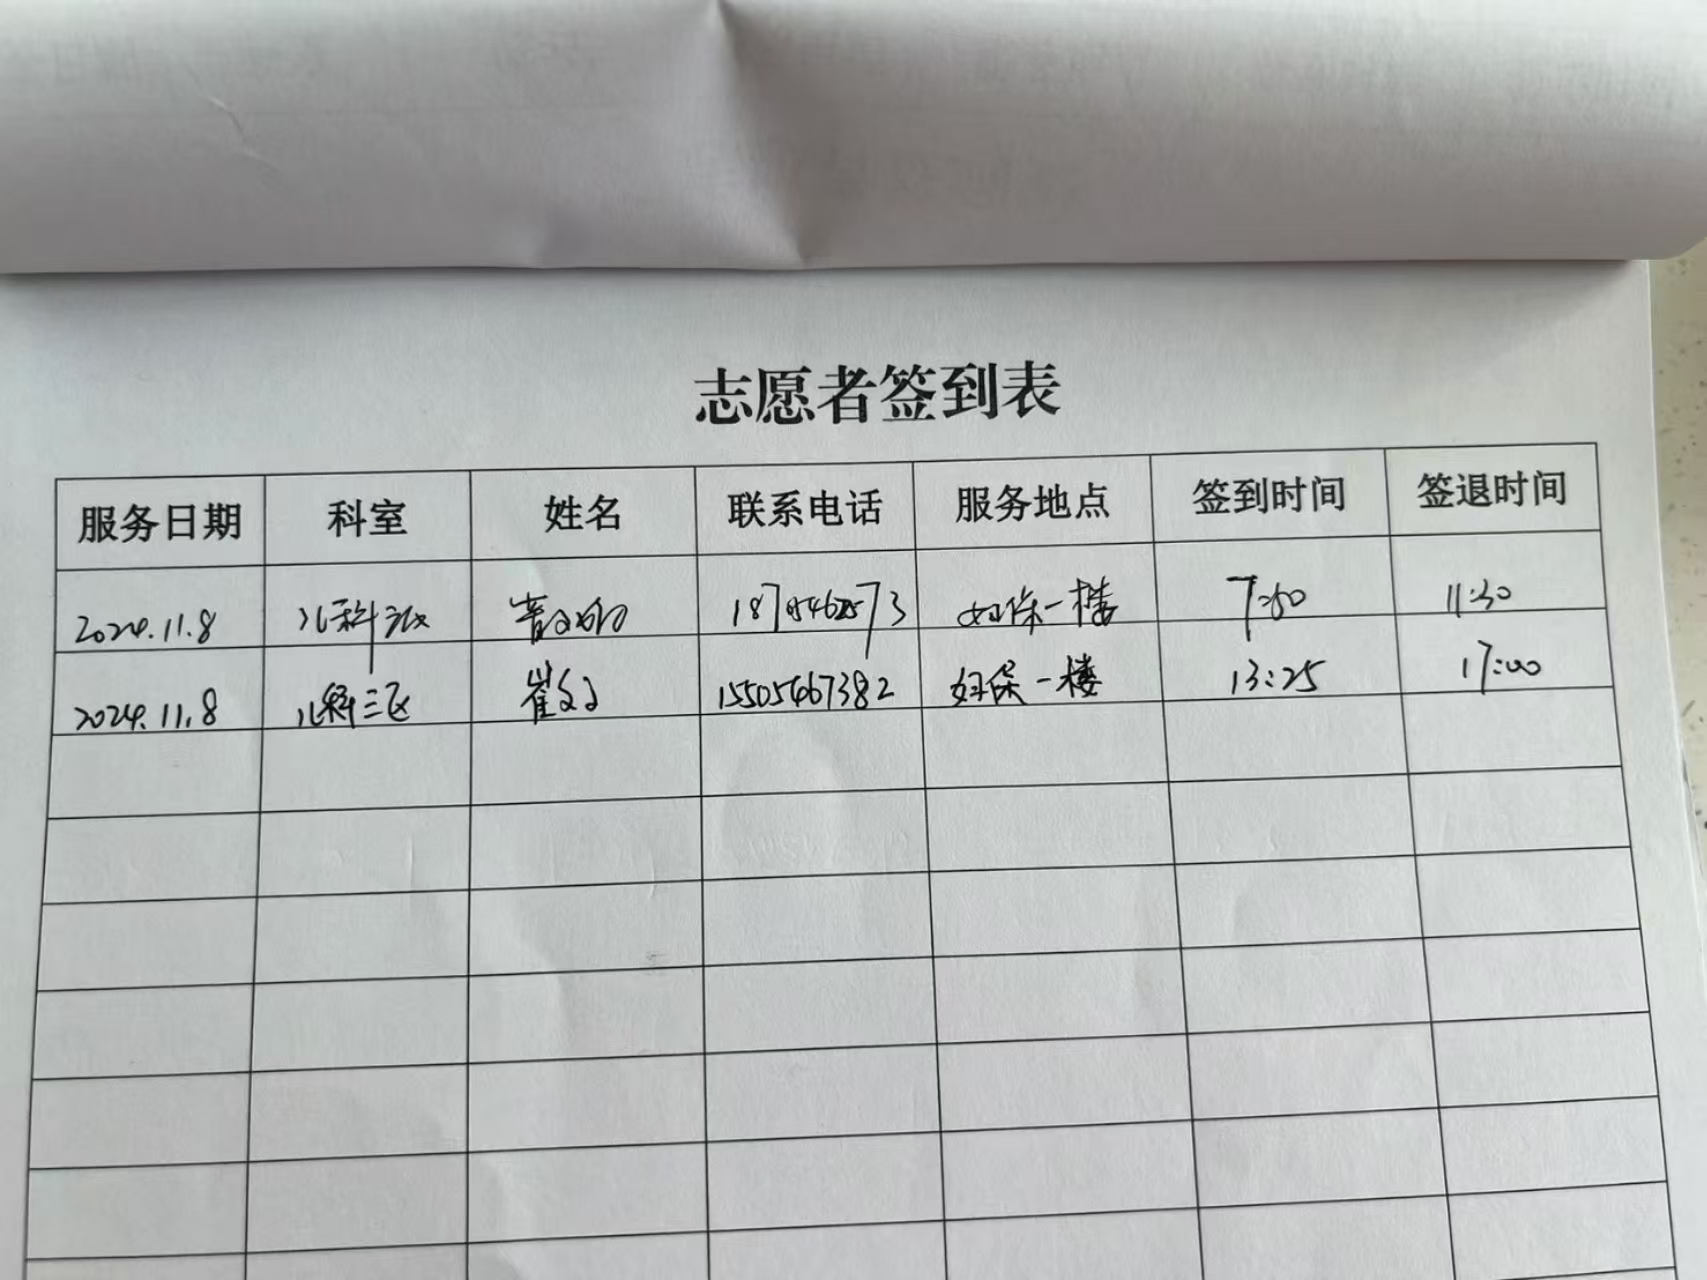 志愿者签到表
服务日期 科室 姓名 联系电话 服务地点 签到时间 签退时间
2024.11.8 儿科 妇保一楼 7:50 11:30
2024.11.8 儿科三区 崔 15505467382 妇保一楼 13:25 17:00